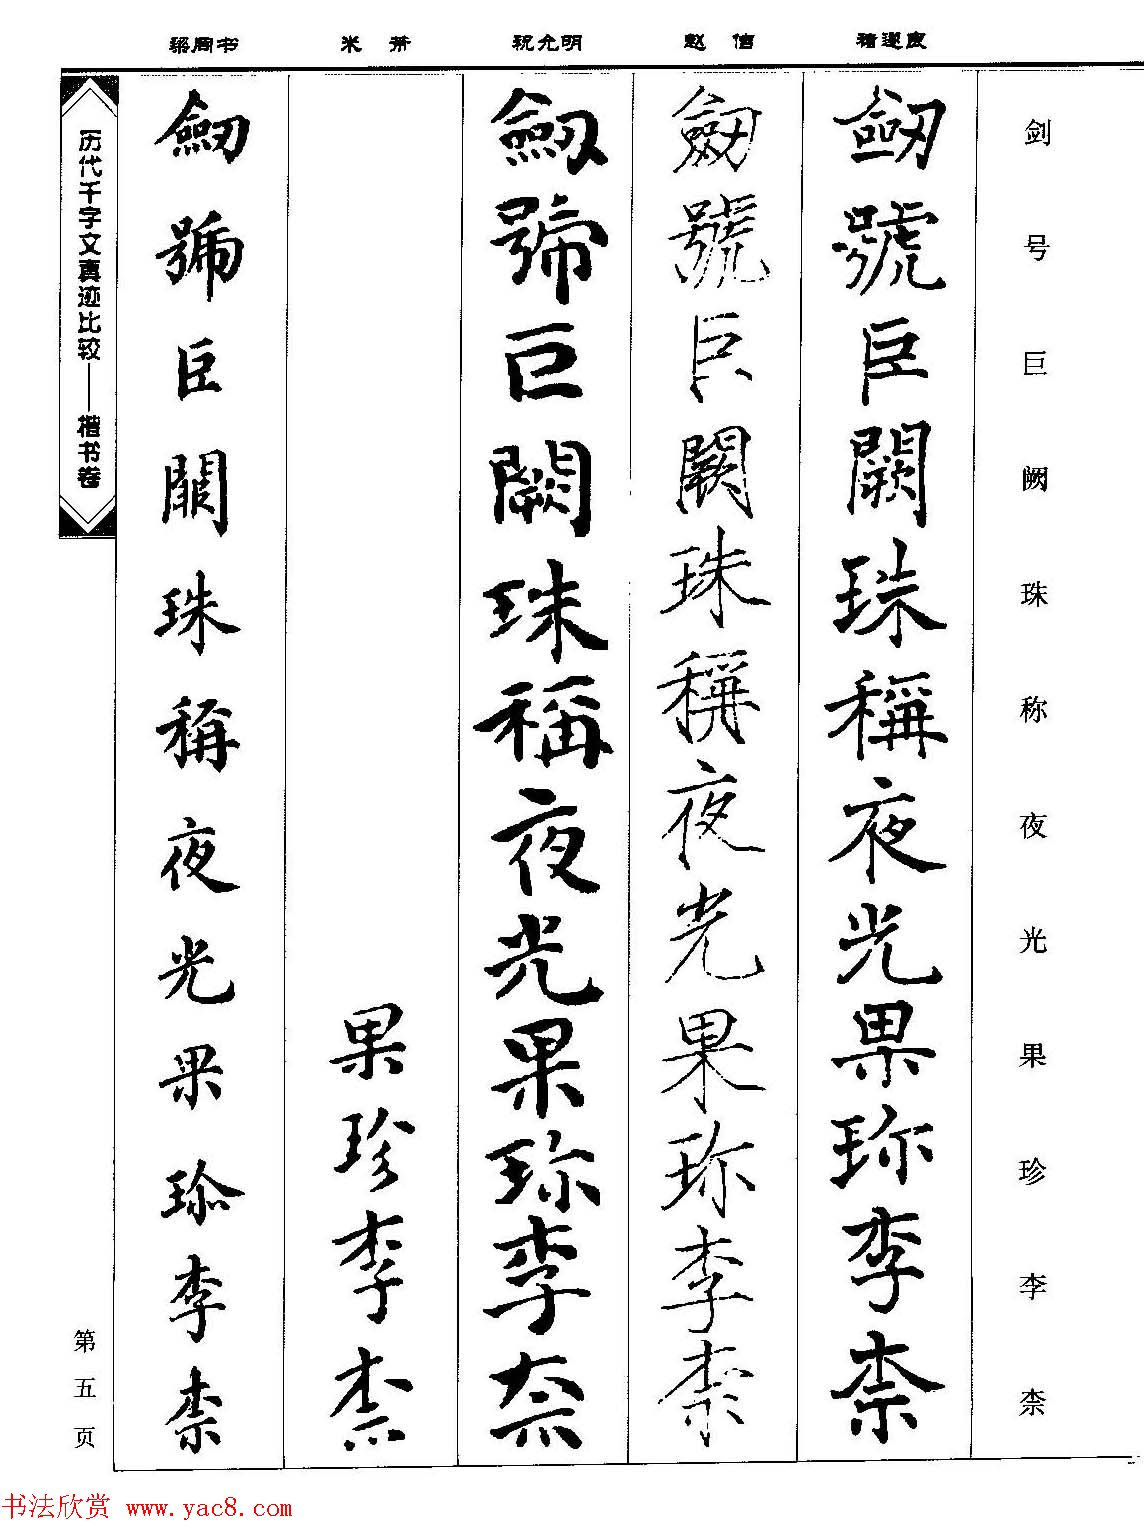 剑号巨阙珠称夜光果珍李柰
褚遂良
劒號巨闕珠稱夜光果珍李柰
赵佶
劒號巨闕珠稱夜光果珍李柰
祝允明
劒號巨闕珠稱夜光果珍李柰
米芾
果珍李柰
梁同书
劒號巨闕珠稱夜光果珍李柰
历代千字文真迹比较——楷书卷
第五页
书法欣赏 www.yac8.com